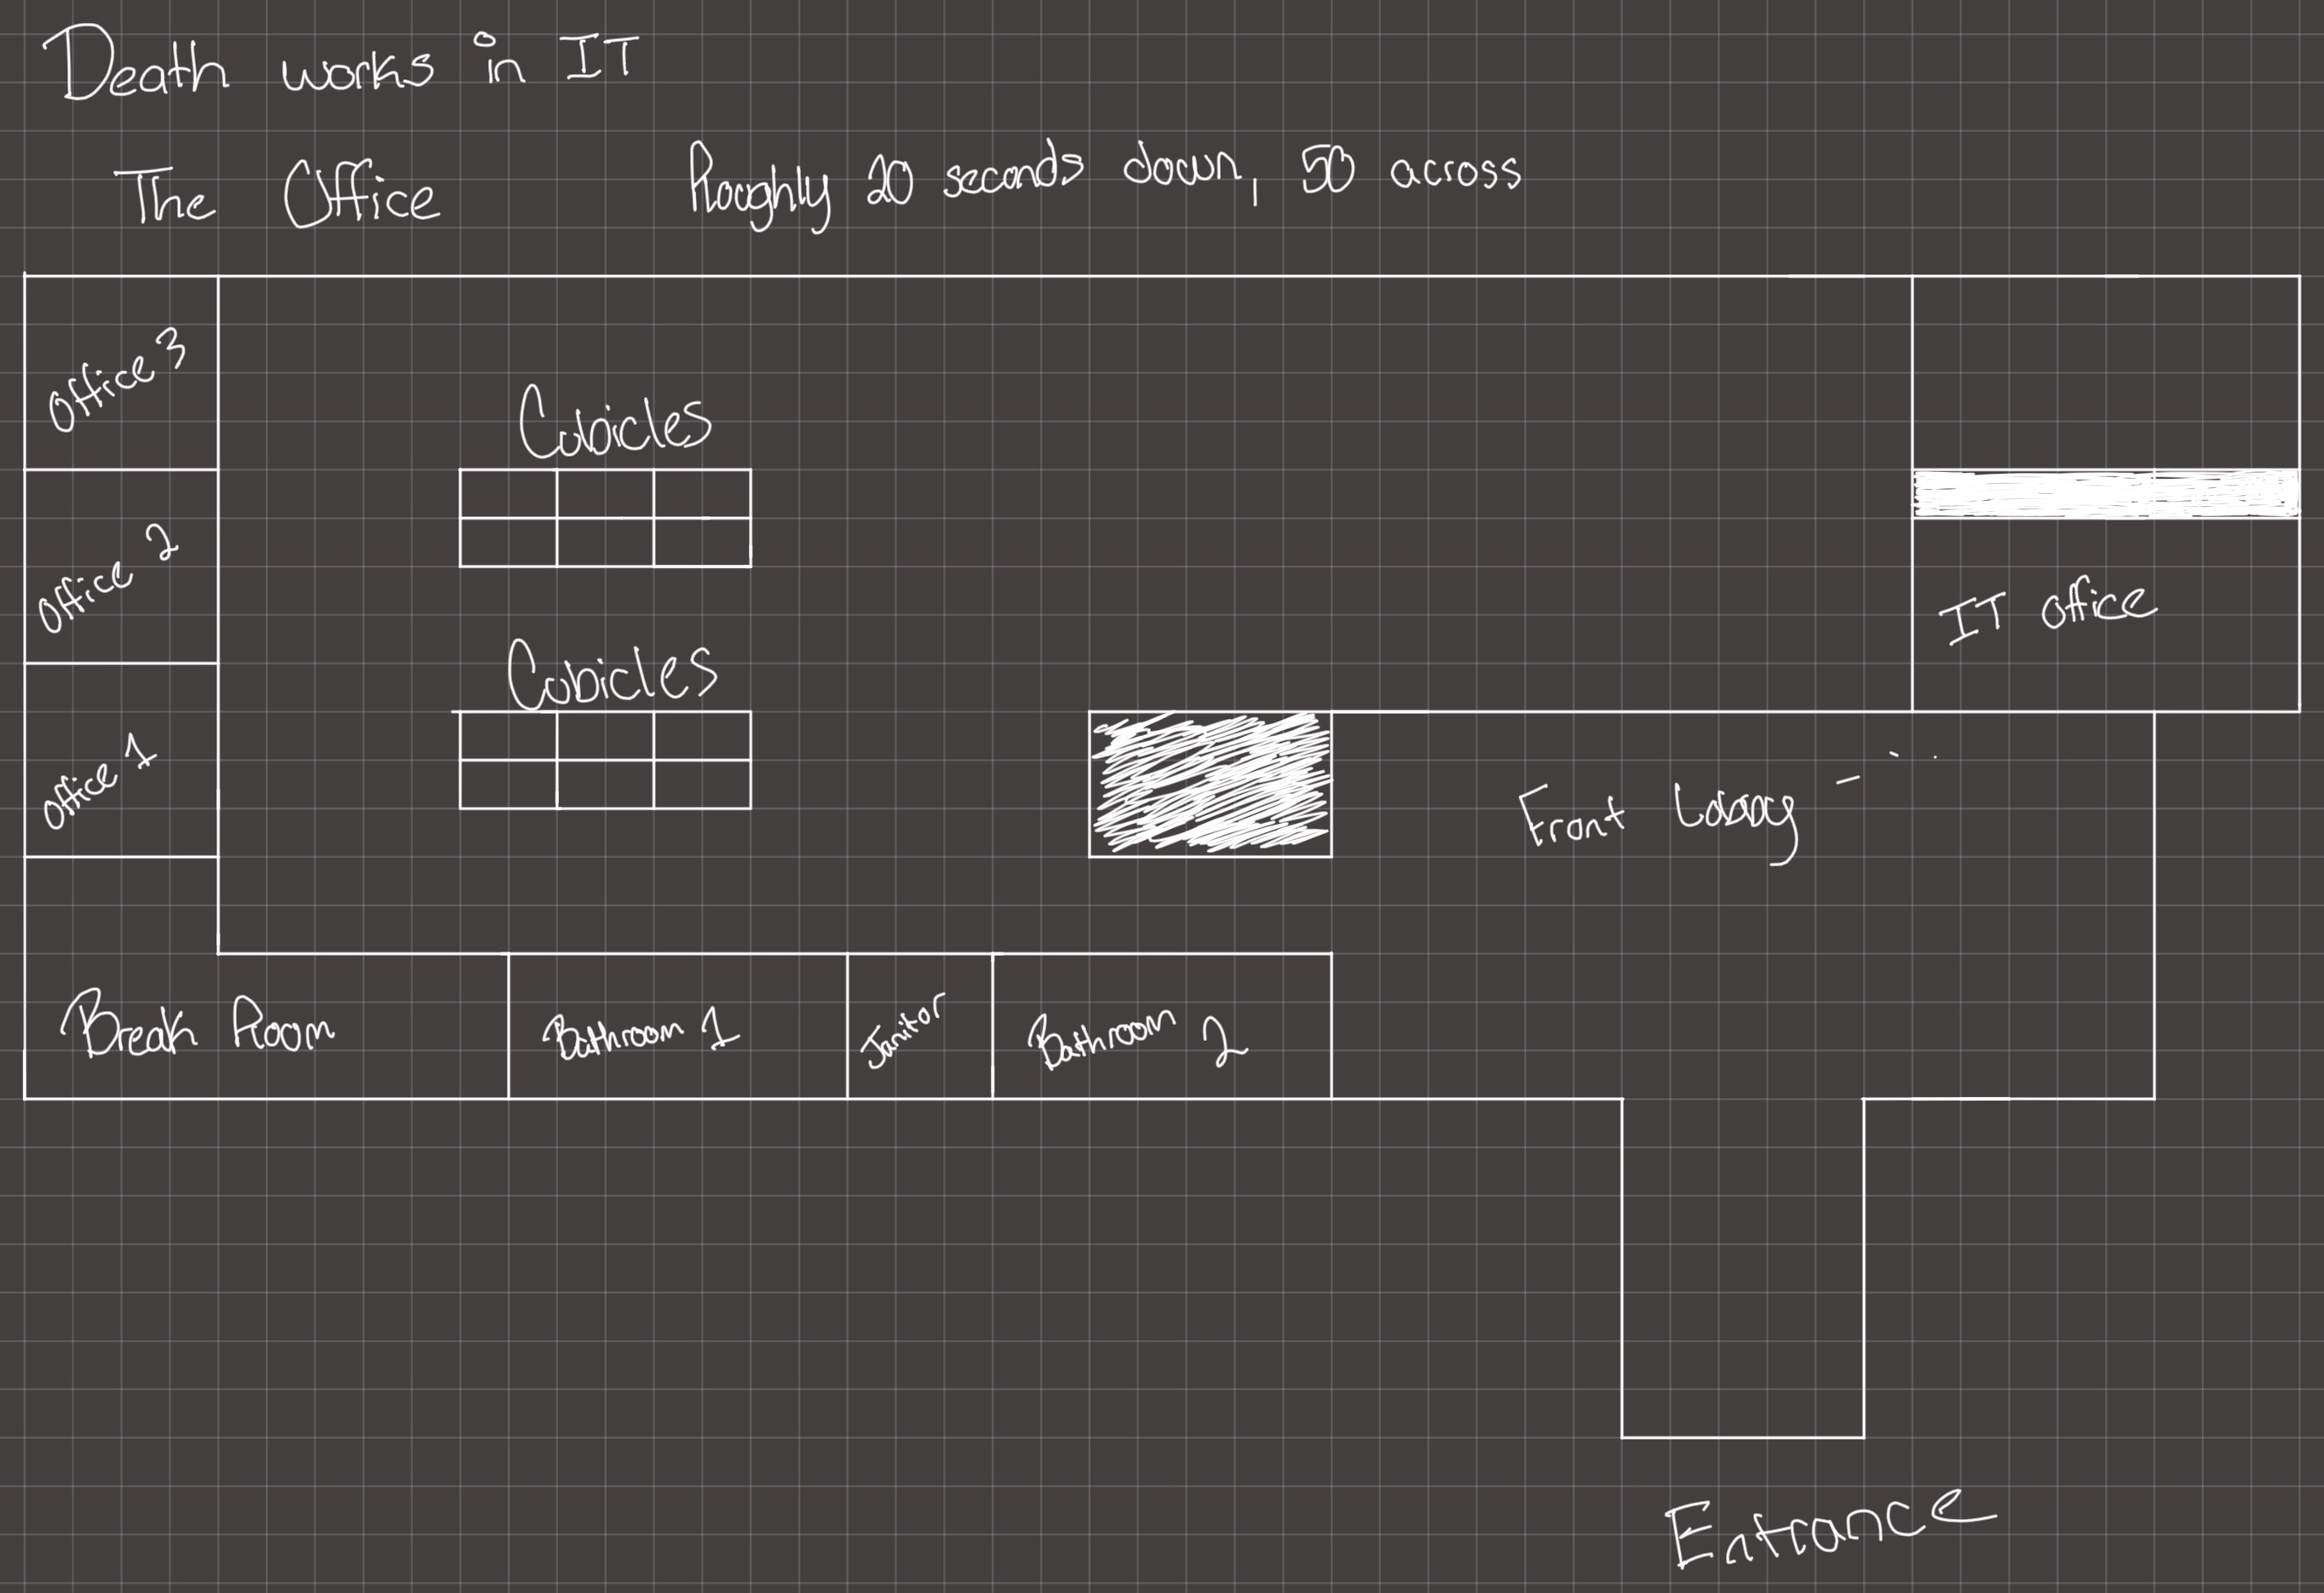 Death works in IT
The Office
Roughly 20 seconds down, 50 across
Office 3
Cubicles
Office 2
IT office
Cubicles
Office 1
Front Lobby
Break Room
Bathroom 1
Janitor
Bathroom 2
Entrance